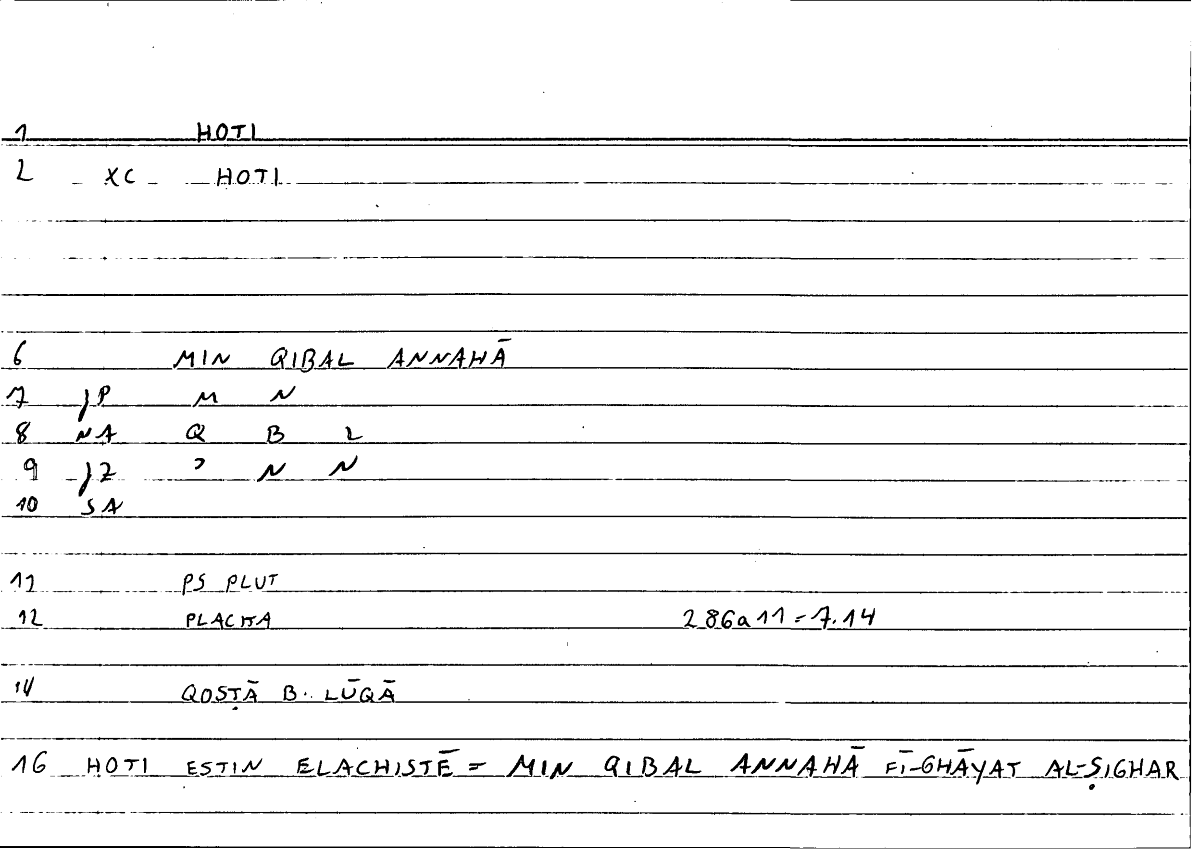 1 HOTI
2 XC HOTI
6 MIN QIBAL ANNAHĀ
7 JP M N
8 NA Q B L
9 JZ ʾ N N
10 SA
11 PS PLUT
12 PLACITA 286a11=7.14
14 QOSṬĀ B. LŪQĀ
16 HOTI ESTIN ELACHISTĒ = MIN QIBAL ANNAHĀ FĪ-GHĀYAT AL-ṢIGHAR